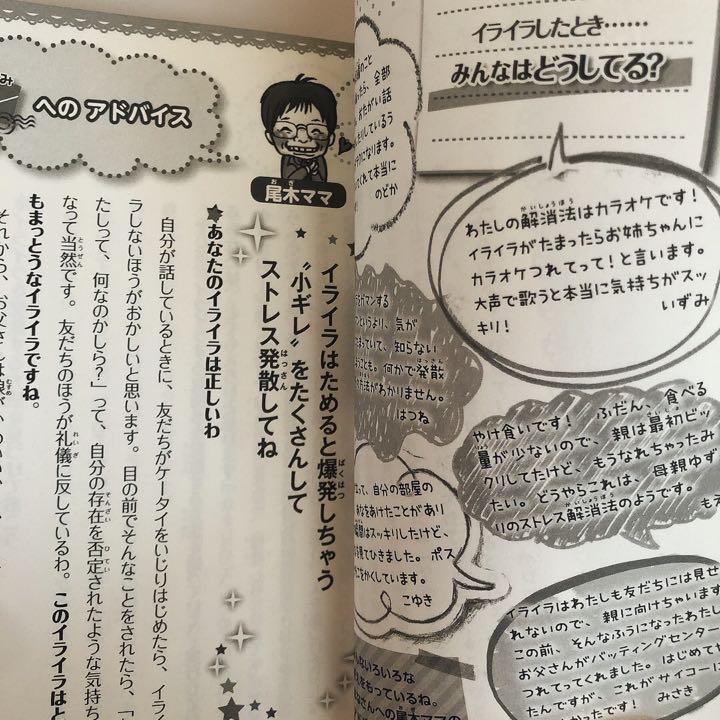 イライラしたとき……
みんなはどうしてる?
わたしの解消法はカラオケです!
イライラがたまったらお姉ちゃんに
カラオケつれてって!と言います。
大声で歌うと本当に気持ちがスッ
キリ!
いずみ
全部
おたがい話
になります。
てくれて本当に
のどか
ガマンする
というより、気が
まっていて、知らない
何かで発散
方法がわかりません。
はつね
やけ食いです! ふだん、食べる
量が少ないので、親は最初ビッ
クリしてたけど、もうなれちゃったみ
たい。どうやらこれは、母親ゆず
りのストレス解消法のようです。
自分の部屋の
あなをあけたことがあり
間はスッキリしたけど、
見てひきました。ポス
をかくしています。
こゆき
イライラはわたしも友だちには見せ
れないので、親に向けちゃいます
この前、そんなふうになったわたし
お父さんがバッティングセンター
つれてってくれました。はじめて
たんですが、これがサイコーに
かったです! みさき
いろいろな
をもっているね。
さんへの尾木ママの
へのアドバイス
尾木ママ
イライラはためると爆発しちゃう
“小ギレ”をたくさんして
ストレス発散してね
あなたのイライラは正しいわ
自分が話しているときに、友だちがケータイをいじりはじめたら、イライ
ラしないほうがおかしいと思います。目の前でそんなことをされたら、「
たしって、何なのかしら?」って、自分の存在を否定されたような気持ち
なって当然です。友だちのほうが礼儀に反しているわ。このイライラはと
もまっとうなイライラですね。
それから、お父さんは